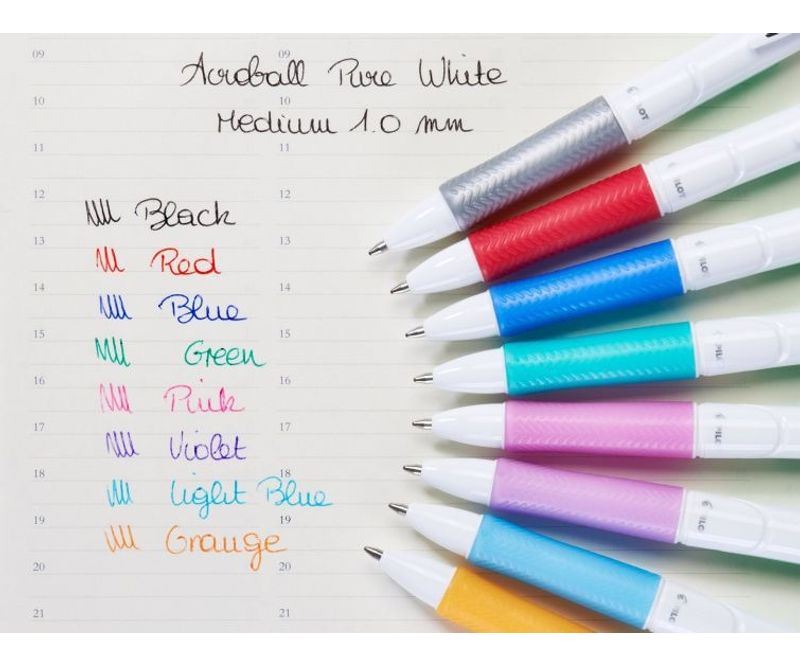 Acroball Pure White
Medium 1.0 mm
Black
Red
Blue
Green
Pink
Violet
Light Blue
Orange
09 09
10 10
11 11
12 12
13 13
14 14
15 15
16 16
17 17
18 18
19 19
20 20
21 21
PILOT